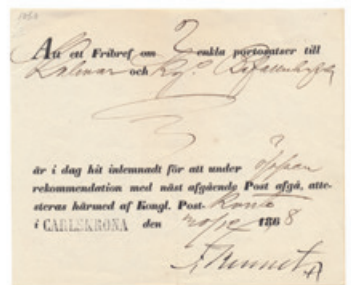 Att ett Fribref om 2 enkla portosatser till
Kalmar och Kgl. Befallenhafde
är i dag hit inlemnadt för att under öppen
rekommendation med näst afgående Post afgå, atte-
steras härmed af Kongl. Post-Kontor
i CARLSKRONA den 1868